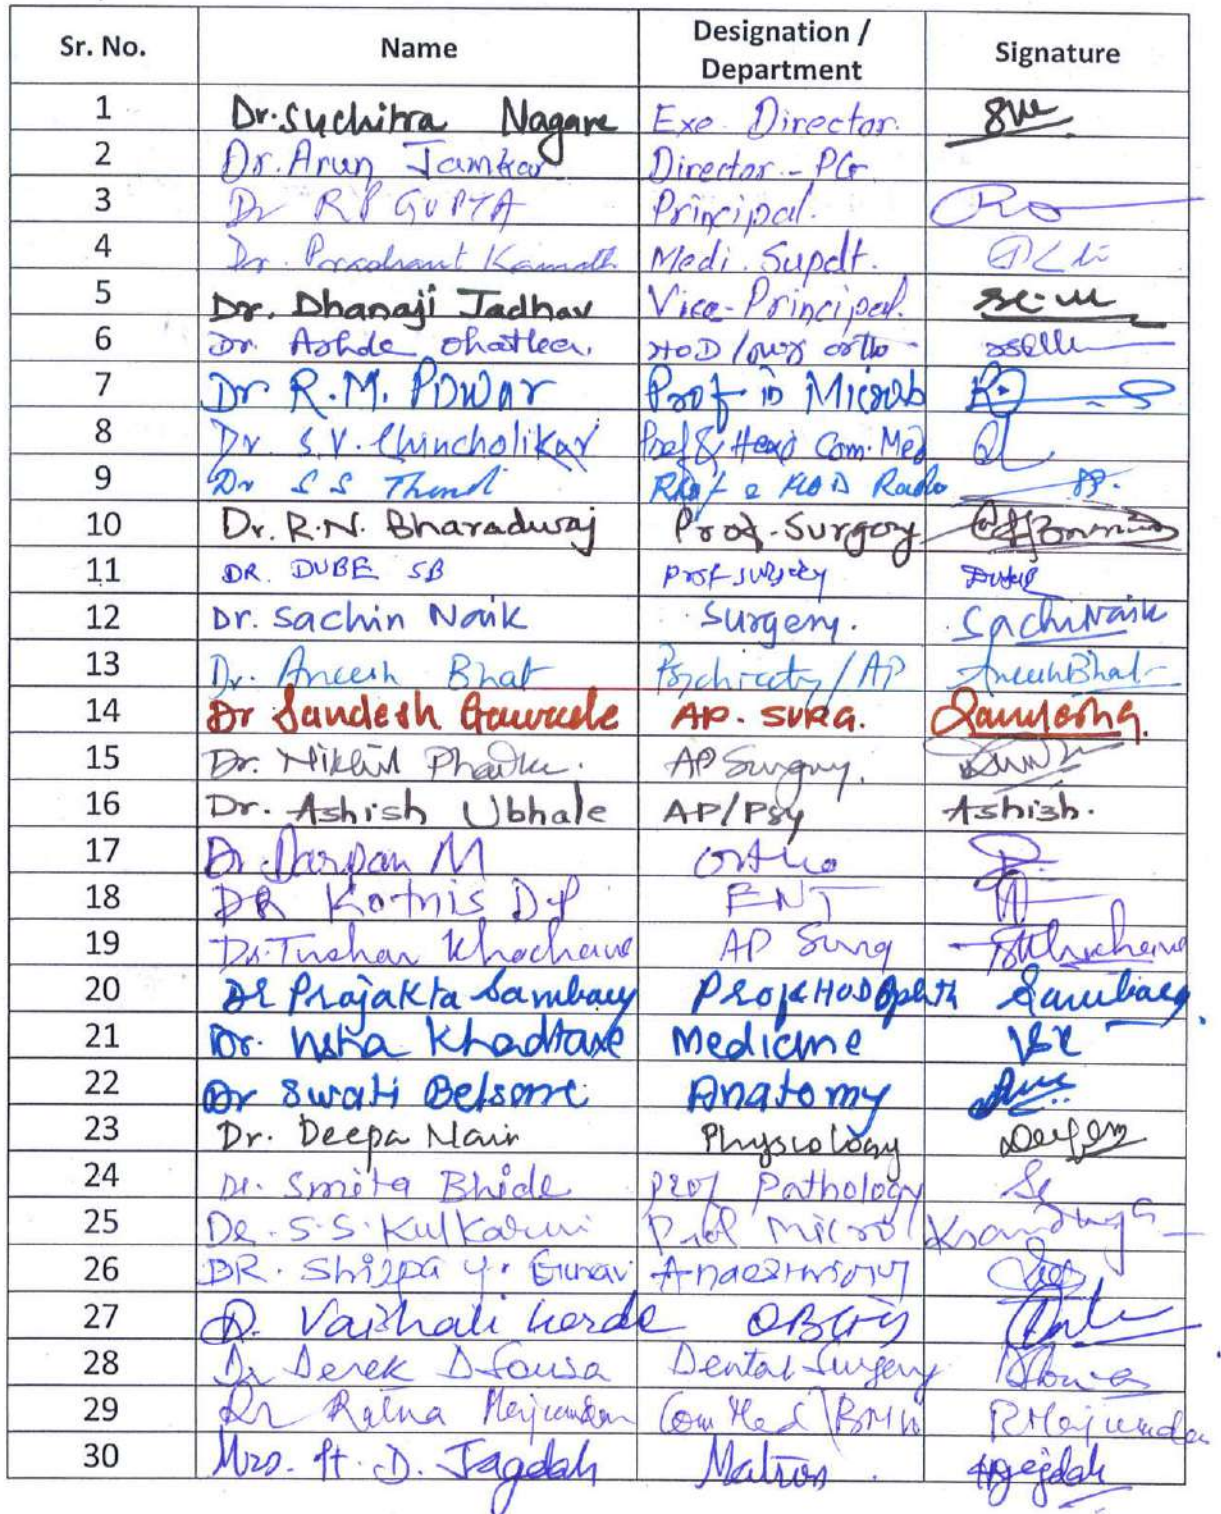 Sr. No. Name Designation / Department Signature
1 Dr. Suchitra Nagare Exe. Director.
2 Dr. Arun Jamkar Director - PG
3 Dr RP GUPTA Principal.
4 Dr. Prashant Kamath Medi. Supdt.
5 Dr. Dhanaji Jadhav Vice-Principal.
6 Dr. HOD ortho
7 Dr R.M. POWAR Prof in Microb
8 Dr S.V. Chincholikar Prof & Head Com. Med
9 Dr S S HOD Radio
10 Dr. R.N. Bharadwaj Prof. Surgery
11 DR. DUBE SB Prof surgery
12 Dr. Sachin Naik Surgery. Sachin Naik
13 Dr. Aneesh Bhat Psychiraty/AP Aneesh Bhat
14 Dr Sandesh Gawade AP. SURG.
15 Dr. Nikhil AP Surgery.
16 Dr. Ashish Ubhale AP/Psy Ashish.
17 Dr Darpan M Ortho
18 DR Kotnis D P ENT
19 Dr. Tushar Khachane AP Surg
20 Dr Prajakta Sambarey Prof & HOD Ophth Sambarey
21 Dr. Khadtare Medicine
22 Dr Swati Belsare Anatomy
23 Dr. Deepa Nair Physiology Deepa
24 Dr. Smita Bhide Prof Pathology
25 De. S.S. Kulkarni Prof Micro
26 DR. Shilpa Y. Gurav
27 Dr. Vaishali Korde OBGY
28 Dr Derek D'Sousa Dental Surgery
29 Dr Ratna Majumdar Com Med RMajumdar
30 Mrs. H. D. Jagdah Matron